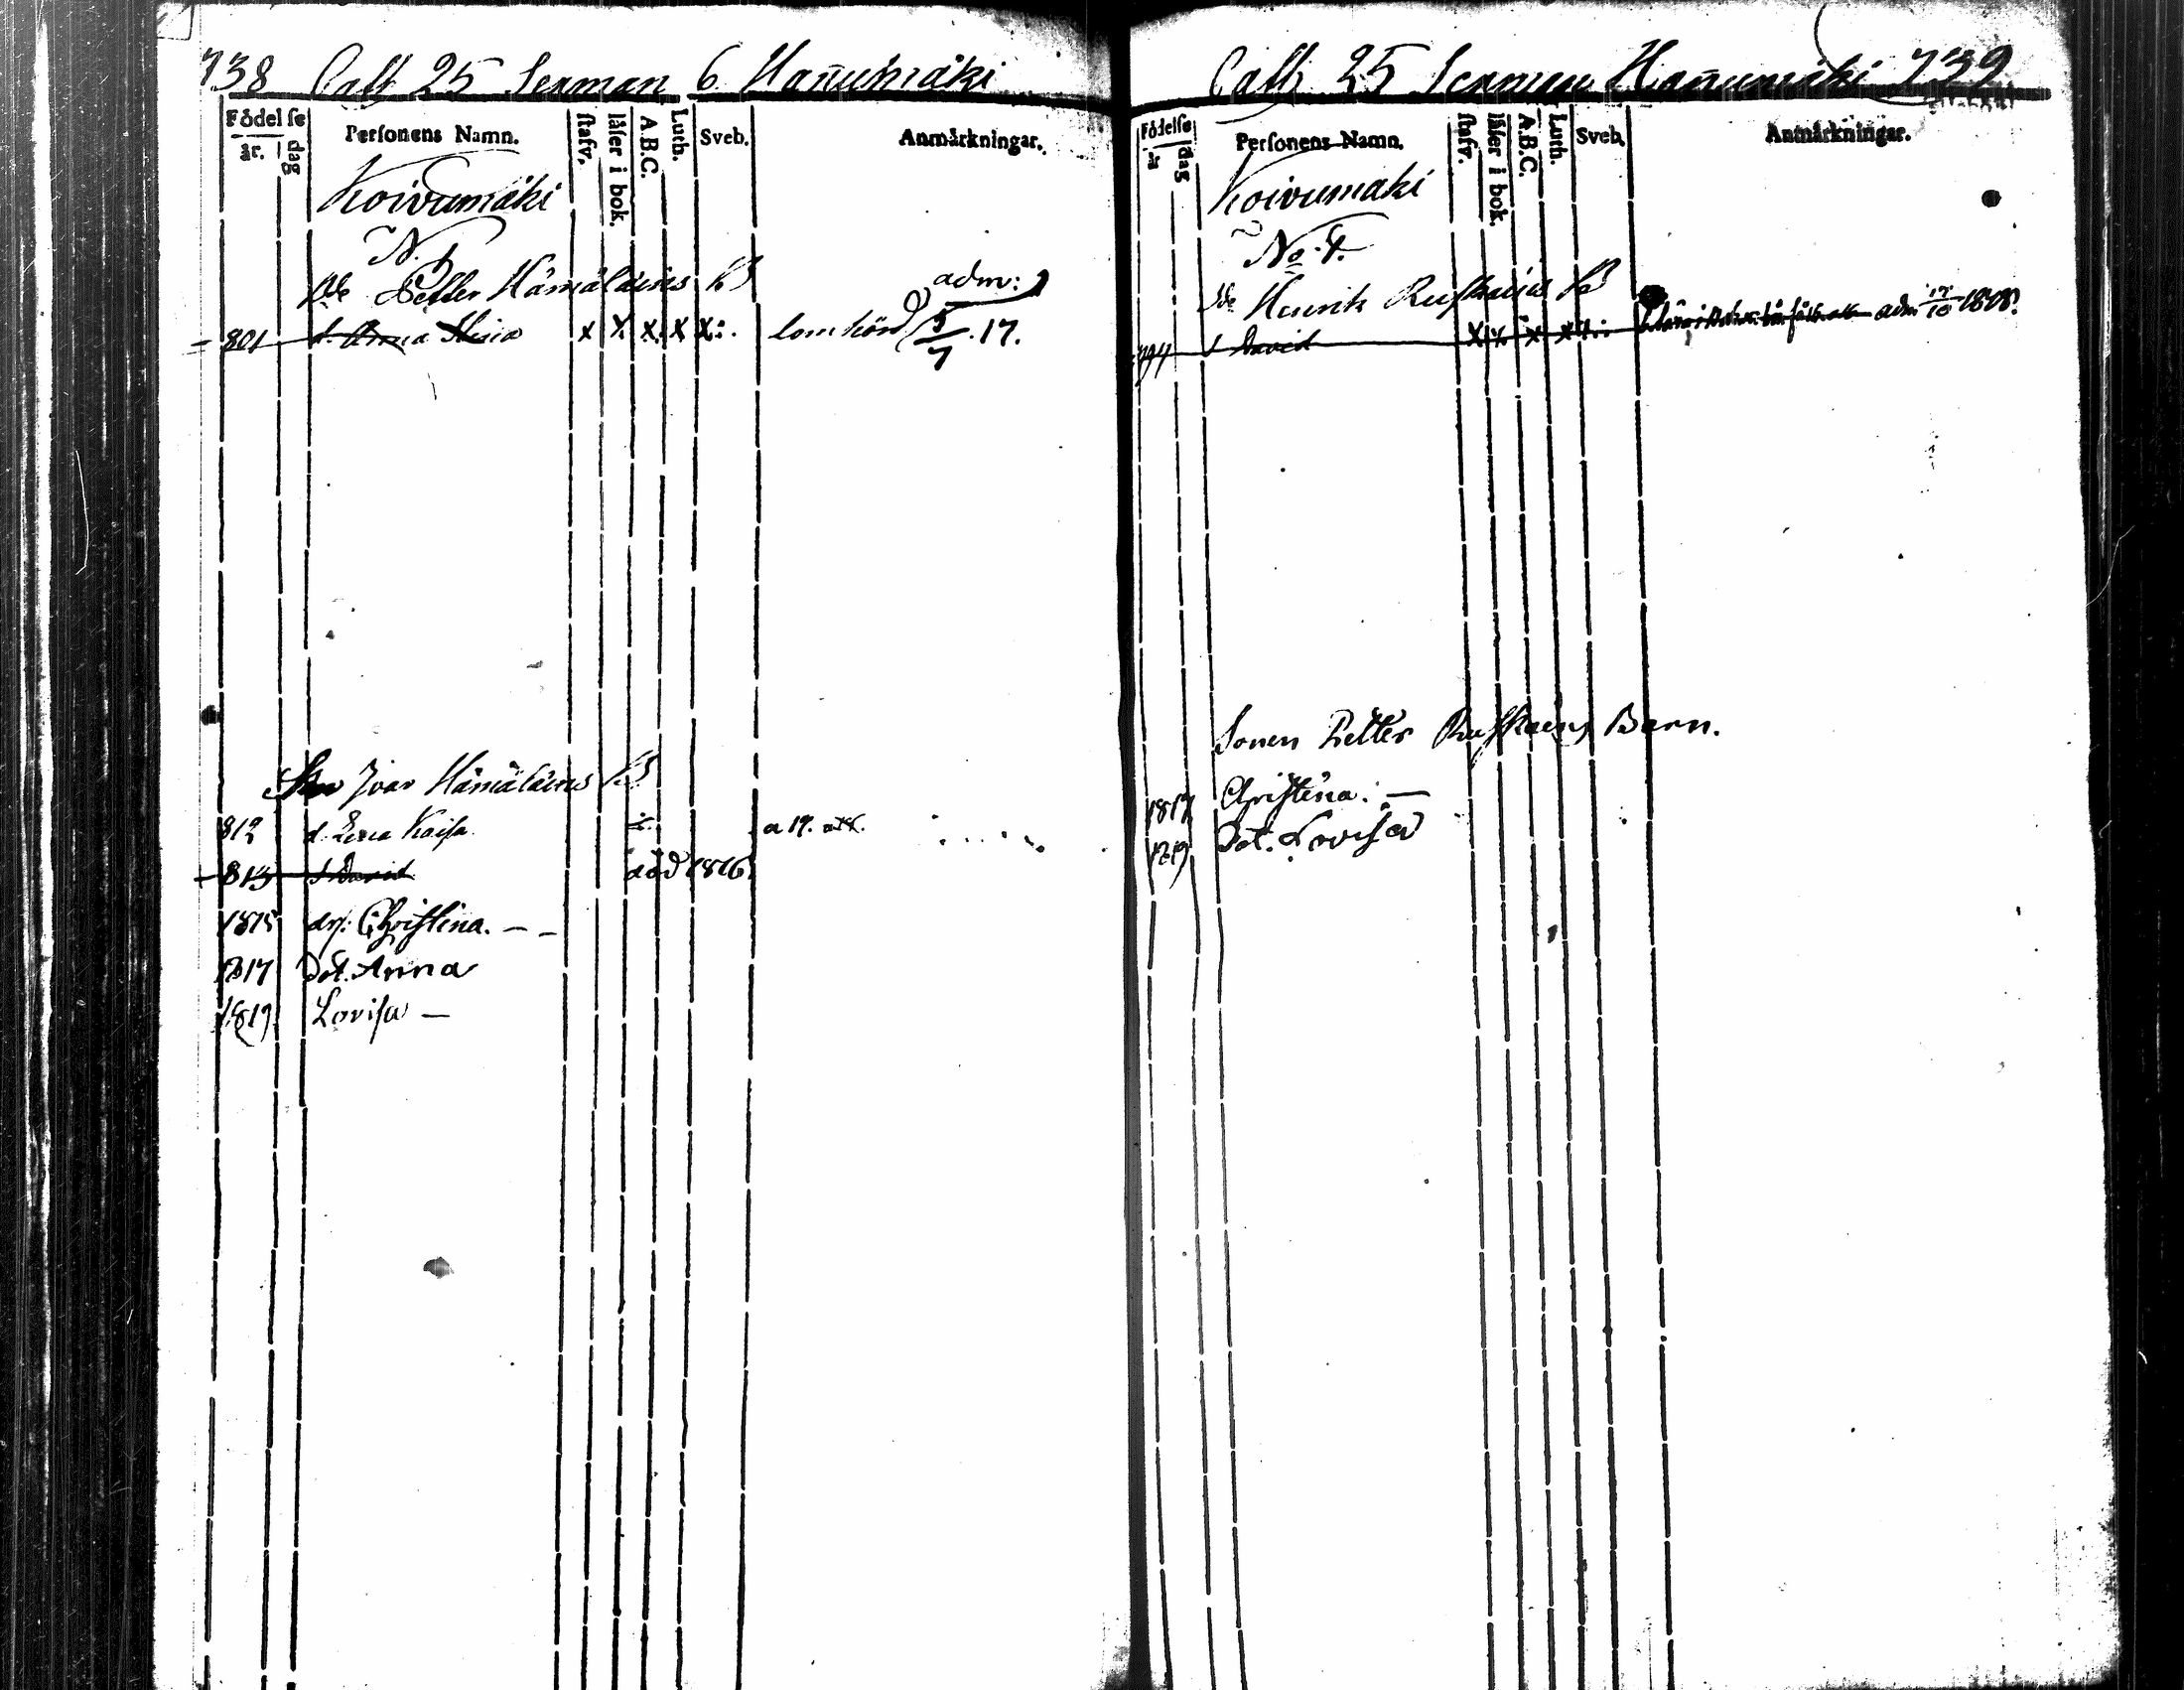 738 Calb 25 Serman 6. Hañumäki
Födelse
år. dag
Personens Namn.
stafv.
låser i bok.
A.B.C.
Luth.
Sveb.
Anmärkningar.
Koivumäki
N.
Petter Hämäläines
adm:
801 d. Anna Stina x x x x x lomhörd 5/7.17.
Ivar Hämäläines
812 d. Lena Kaisa a 19.
813 s David död 1816.
1815 Christina. - -
1817 Dot. Anna
1819 Lovisa -
Calb 25 Serman Hañumäki 739
Födelse
år dag
Personens Namn.
stafv.
låser i bok.
A.B.C.
Luth.
Sveb.
Anmärkningar.
Koivumäki
No. 4.
Henrik Ruskains
794 s David x x x x adm 1808.
Sonen Petter Ruskains Barn.
1817 Christina. -
1819 Dot. Lovisa